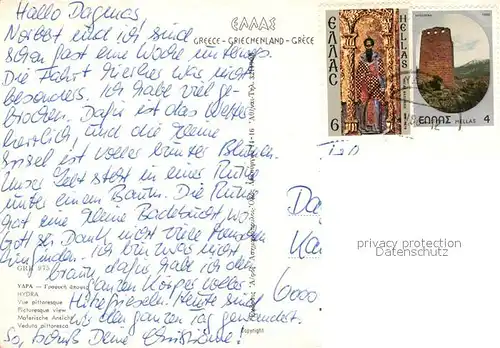 Hallo Dagmar
Norbert und ich sind
schon fast eine Woche unterwegs.
Die Fahrt hierher war nicht
besonders. Ich habe viel ge-
brochen. Dafür ist das Wetter
herrlich! und die kleine
Insel ist voller bunter Blumen.
Unser Zelt steht in einer Ruine
unter einem Baum. Die Ruine
hat eine kleine Badebucht wo
Gott sei Dank nicht viele Menschen
hinfinden. Ich bin zwar nicht
braun, dafür habe ich den
ganzen Körper voller
Hitzepickel. Heute sind
wir den ganzen Tag gewandert.
So, tschüß Deine Christiane!
ΥΔΡΑ
HYDRA
Vue pittoresque
Picturesque view
Malerische Ansicht
Veduta pittoresca
copyright
ΕΛΛΑΣ
GREECE - GRIECHENLAND - GRÈCE
ΕΛΛΑΣ
HELLAS
6
ΕΛΛΑΣ HELLAS 4
Da
Ka
6000
privacy protection
Datenschutz